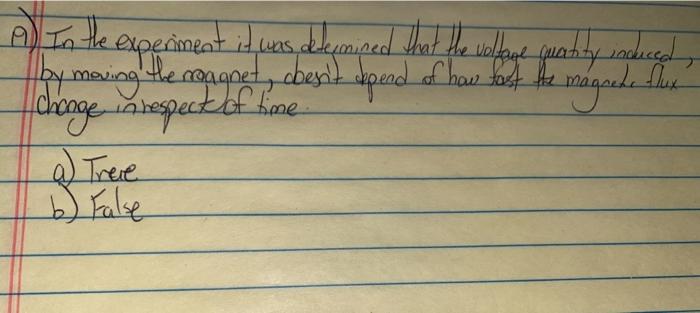 A) In the experiment it was determined that the voltage quantity induced,
by moving the magnet, doesn't depend of how fast the magnetic flux
change in respect of time.
a) True
b) False